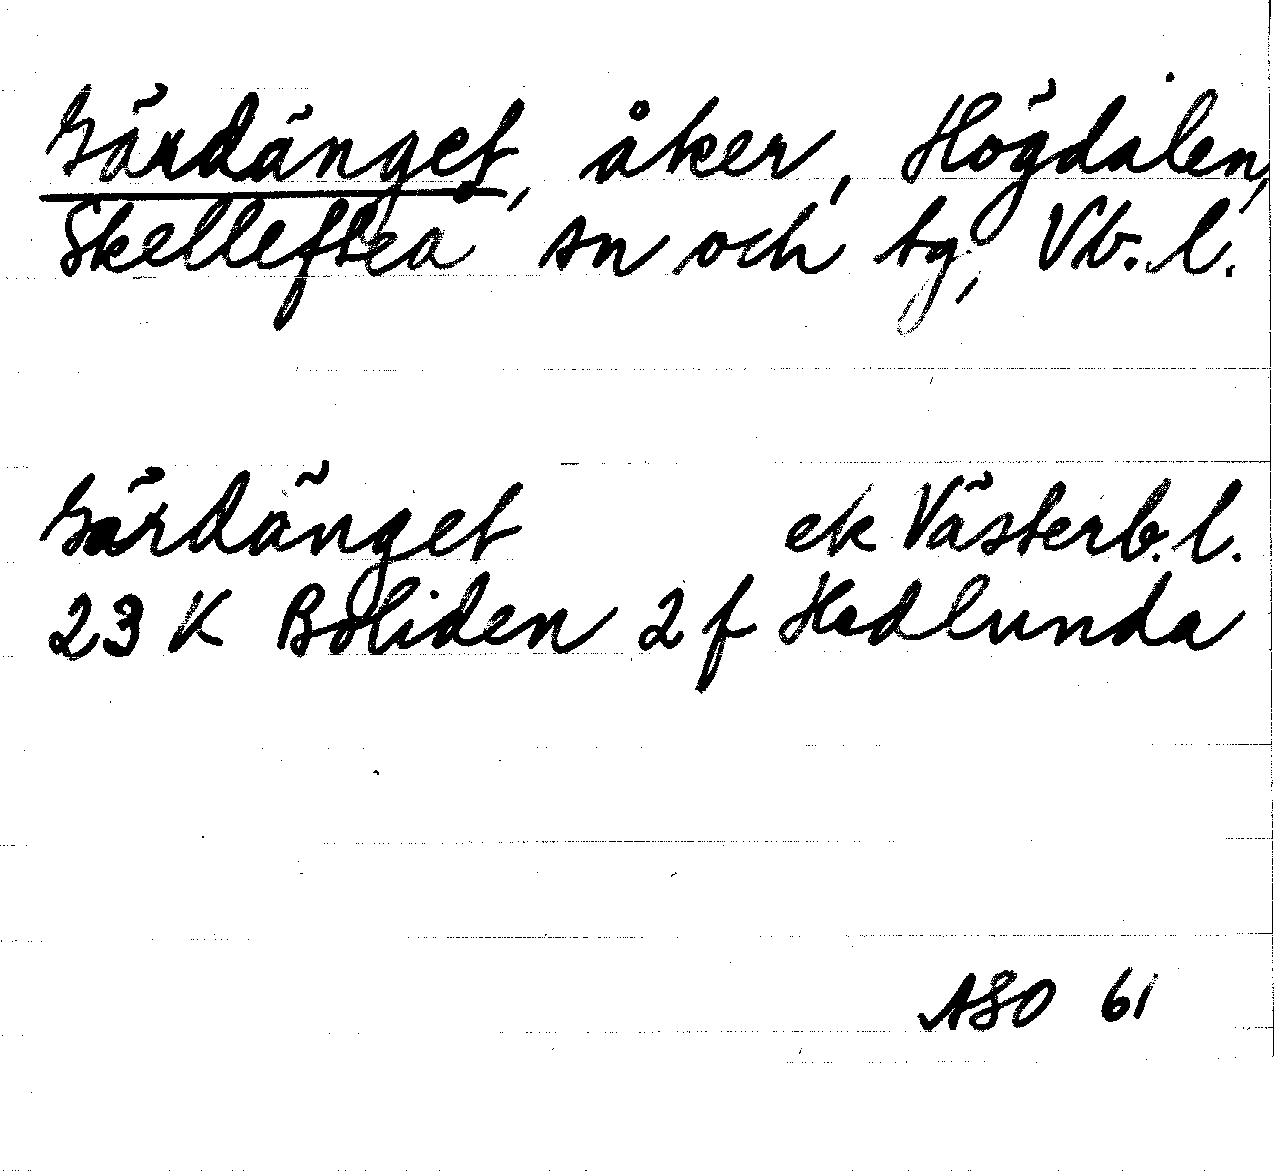 Gärdänget, åker, Högdalen,
Skelleftea sn och tg, Vb. l.
Gärdänget ek Västerb. l.
23 K Boliden 2 f Hedlunda
ASO 61